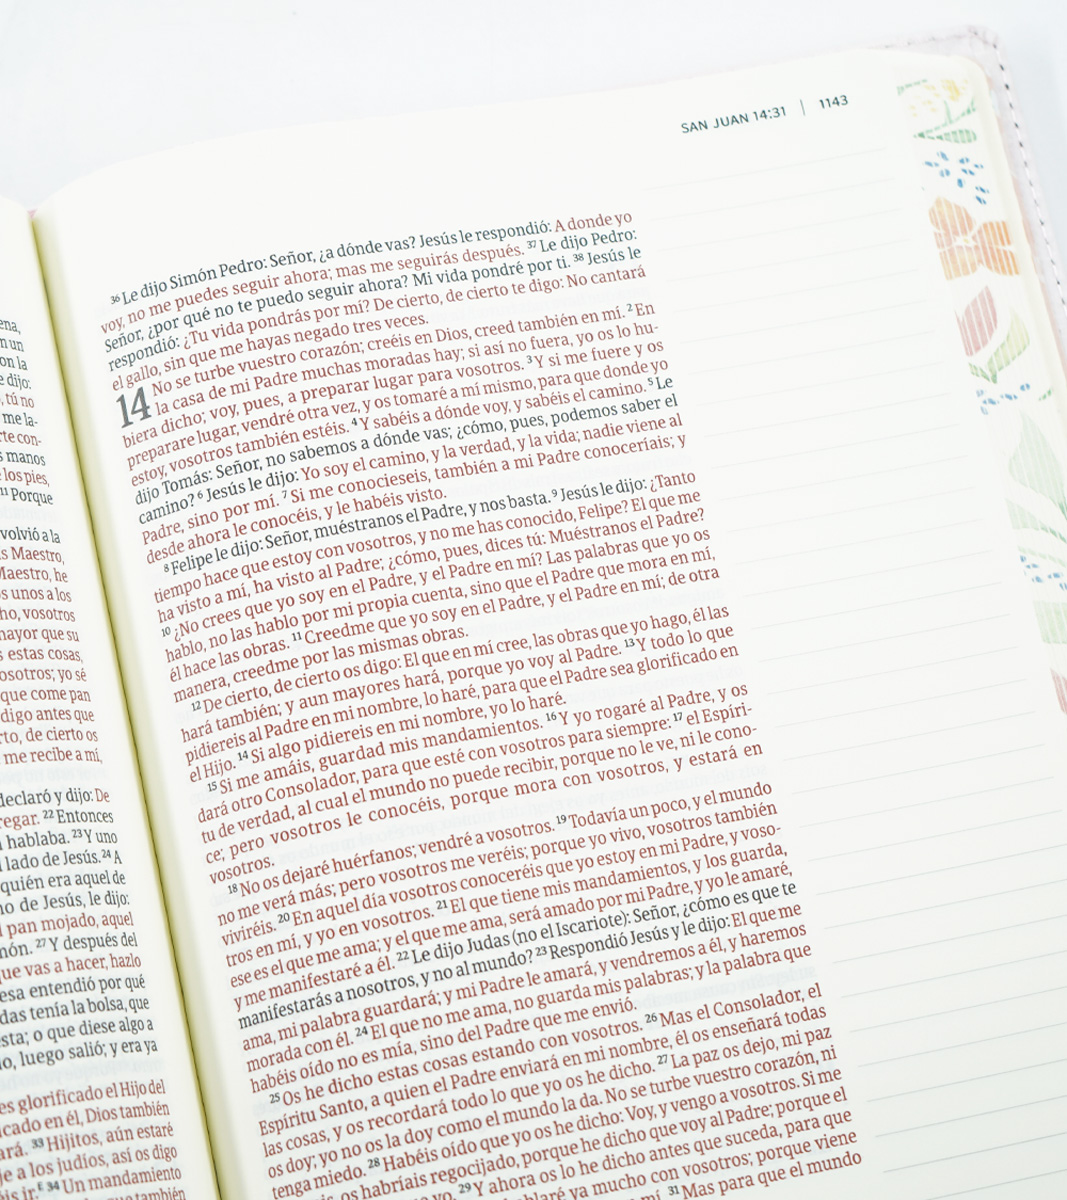 ena,
n un
on la
e dijo:
, tú no
me la-
rte con-
s manos
los pies,
11 Porque
volvió a la
s Maestro,
Maestro, he
s unos a los
ho, vosotros
mayor que su
s estas cosas,
osotros; yo sé
que come pan
digo antes que
rto, de cierto os
me recibe a mí,
declaró y dijo: De
regar. 22 Entonces
hablaba. 23 Y uno
lado de Jesús. 24 A
quién era aquel de
no de Jesús, le dijo:
l pan mojado, aquel
món. 27 Y después del
que vas a hacer, hazlo
esa entendió por qué
das tenía la bolsa, que
sta; o que diese algo a
o, luego salió; y era ya
es glorificado el Hijo del
icado en él, Dios también
ará. 33 Hijitos, aún estaré
je a los judíos, así os digo
is ir.E 34 Un mandamiento
que también
SAN JUAN 14:31 | 1143
36 Le dijo Simón Pedro: Señor, ¿a dónde vas? Jesús le respondió: A donde yo
voy, no me puedes seguir ahora; mas me seguirás después. 37 Le dijo Pedro:
Señor, ¿por qué no te puedo seguir ahora? Mi vida pondré por ti. 38 Jesús le
respondió: ¿Tu vida pondrás por mí? De cierto, de cierto te digo: No cantará
el gallo, sin que me hayas negado tres veces.
14 No se turbe vuestro corazón; creéis en Dios, creed también en mí. 2 En
la casa de mi Padre muchas moradas hay; si así no fuera, yo os lo hu-
biera dicho; voy, pues, a preparar lugar para vosotros. 3 Y si me fuere y os
preparare lugar, vendré otra vez, y os tomaré a mí mismo, para que donde yo
estoy, vosotros también estéis. 4 Y sabéis a dónde voy, y sabéis el camino. 5 Le
dijo Tomás: Señor, no sabemos a dónde vas; ¿cómo, pues, podemos saber el
camino? 6 Jesús le dijo: Yo soy el camino, y la verdad, y la vida; nadie viene al
Padre, sino por mí. 7 Si me conocieseis, también a mi Padre conoceríais; y
desde ahora le conocéis, y le habéis visto.
8 Felipe le dijo: Señor, muéstranos el Padre, y nos basta. 9 Jesús le dijo: ¿Tanto
tiempo hace que estoy con vosotros, y no me has conocido, Felipe? El que me
ha visto a mí, ha visto al Padre; ¿cómo, pues, dices tú: Muéstranos el Padre?
10 ¿No crees que yo soy en el Padre, y el Padre en mí? Las palabras que yo os
hablo, no las hablo por mi propia cuenta, sino que el Padre que mora en mí,
él hace las obras. 11 Creedme que yo soy en el Padre, y el Padre en mí; de otra
manera, creedme por las mismas obras.
12 De cierto, de cierto os digo: El que en mí cree, las obras que yo hago, él las
hará también; y aun mayores hará, porque yo voy al Padre. 13 Y todo lo que
pidiereis al Padre en mi nombre, lo haré, para que el Padre sea glorificado en
el Hijo. 14 Si algo pidiereis en mi nombre, yo lo haré.
15 Si me amáis, guardad mis mandamientos. 16 Y yo rogaré al Padre, y os
dará otro Consolador, para que esté con vosotros para siempre: 17 el Espíri-
tu de verdad, al cual el mundo no puede recibir, porque no le ve, ni le cono-
ce; pero vosotros le conocéis, porque mora con vosotros, y estará en
vosotros.
18 No os dejaré huérfanos; vendré a vosotros. 19 Todavía un poco, y el mundo
no me verá más; pero vosotros me veréis; porque yo vivo, vosotros también
viviréis. 20 En aquel día vosotros conoceréis que yo estoy en mi Padre, y voso-
tros en mí, y yo en vosotros. 21 El que tiene mis mandamientos, y los guarda,
ese es el que me ama; y el que me ama, será amado por mi Padre, y yo le amaré,
y me manifestaré a él. 22 Le dijo Judas (no el Iscariote): Señor, ¿cómo es que te
manifestarás a nosotros, y no al mundo? 23 Respondió Jesús y le dijo: El que me
ama, mi palabra guardará; y mi Padre le amará, y vendremos a él, y haremos
morada con él. 24 El que no me ama, no guarda mis palabras; y la palabra que
habéis oído no es mía, sino del Padre que me envió.
25 Os he dicho estas cosas estando con vosotros. 26 Mas el Consolador, el
Espíritu Santo, a quien el Padre enviará en mi nombre, él os enseñará todas
las cosas, y os recordará todo lo que yo os he dicho. 27 La paz os dejo, mi paz
os doy; yo no os la doy como el mundo la da. No se turbe vuestro corazón, ni
tenga miedo. 28 Habéis oído que yo os he dicho: Voy, y vengo a vosotros. Si me
os habríais regocijado, porque he dicho que voy al Padre; porque el
yo. 29 Y ahora os lo he dicho antes que suceda, para que
hablaré ya mucho con vosotros; porque viene
mí. 31 Mas para que el mundo